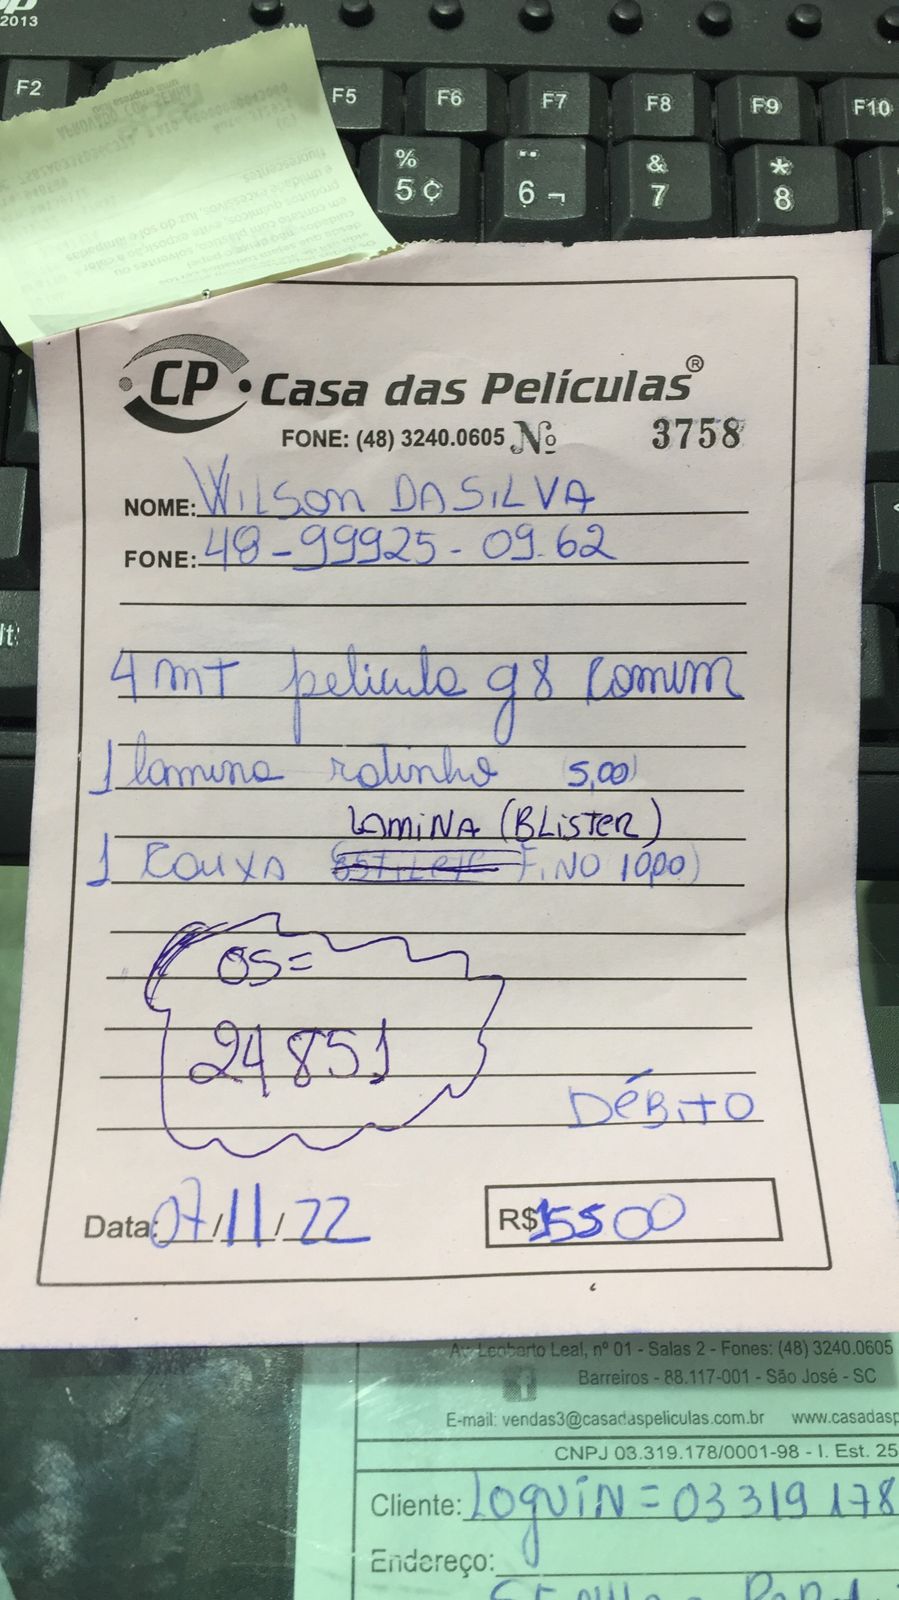 2013
F2
F5
F6
F7
F8
F9
F10
%
5 ¢
¨
6 ¬
&
7
*
8
CP
Casa das Películas®
FONE: (48) 3240.0605 Nº 3758
NOME: WILSON DA SILVA
FONE: 48-99925-09.62
4 mt pelicula g8 comum
1 lamina ratinho (5,00)
LAMINA (BLISTER)
1 CAIXA FINO 10,00)
OS=
24851
DÉBITO
Data: 07/11/22 R$ 155 00
Av. Leoberto Leal, nº 01 - Salas 2 - Fones: (48) 3240.0605
Barreiros - 88.117-001 - São José - SC
E-mail: vendas3@casadaspeliculas.com.br www.casadasp
CNPJ 03.319.178/0001-98 - I. Est. 25
Cliente: LOGUIN = 03319178
Endereço: